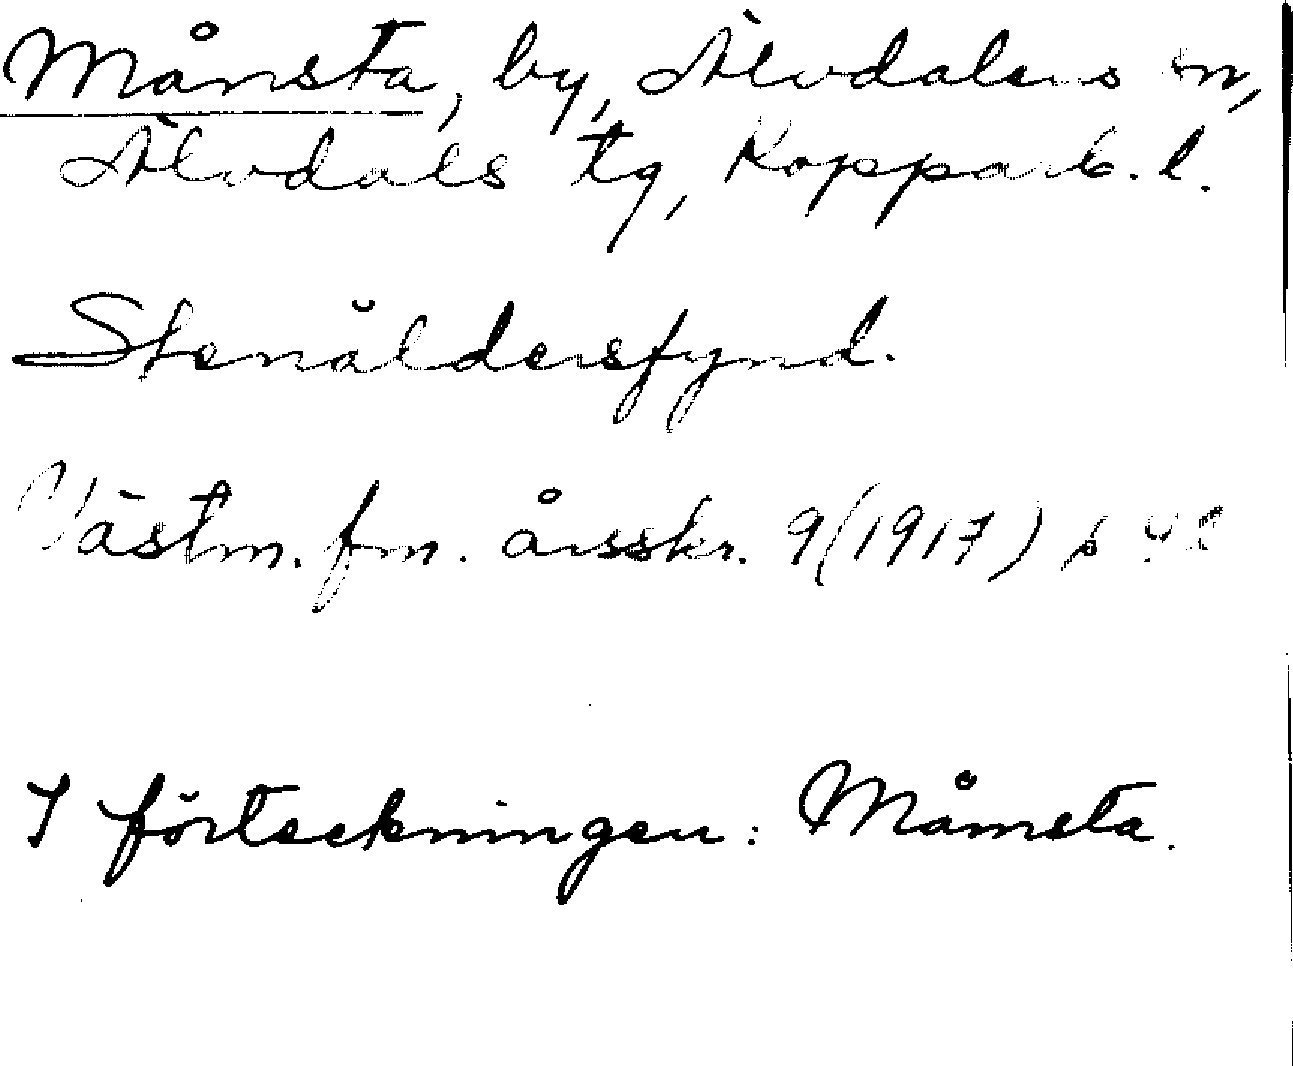 Månsta, by, Älvdalens sn,
Älvdals tg, Kopparb. l.
Stenåldersfynd.
Västm. fm. årsskr. 9 (1917) s
I förteckningen: Måmsta.